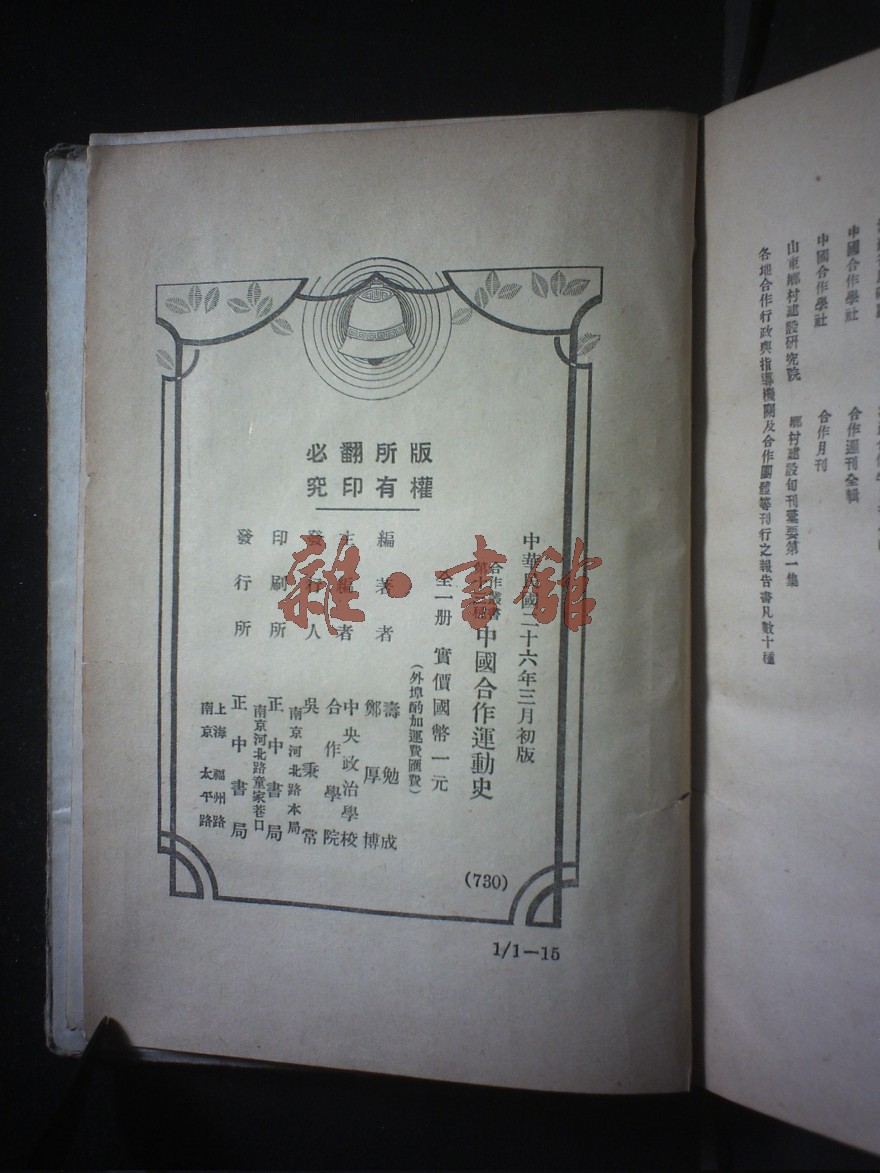 各地合作行政與指導機關及合作團體等刊行之報告書凡數十種
山東鄉村建設研究院　鄉村建設旬刊彙要第一集
中國合作學社　合作月刊
中國合作學社　合作週刊全輯
版權所有
翻印必究
中華民國二十六年三月初版
合作叢書
中國合作運動史
全一册　實價國幣一元
（外埠酌加運費匯費）
編著者　壽勉成　鄭厚博
主編者　中央政治學校合作學院
發行人　吳秉常
南京河北路本局
印刷所　正中書局
南京河北路童家巷口
發行所　正中書局
上海福州路
南京太平路
(730)
1/1—15
雜·書館